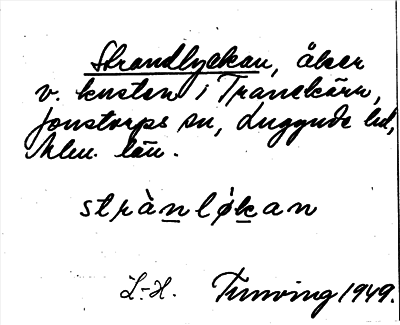 Strandlyckan, åker
v. kusten i Tranekärr,
Jonstorps sn, Luggude hd,
Mlm. län.
strànlø̀kan
L-H. Tunving 1949.